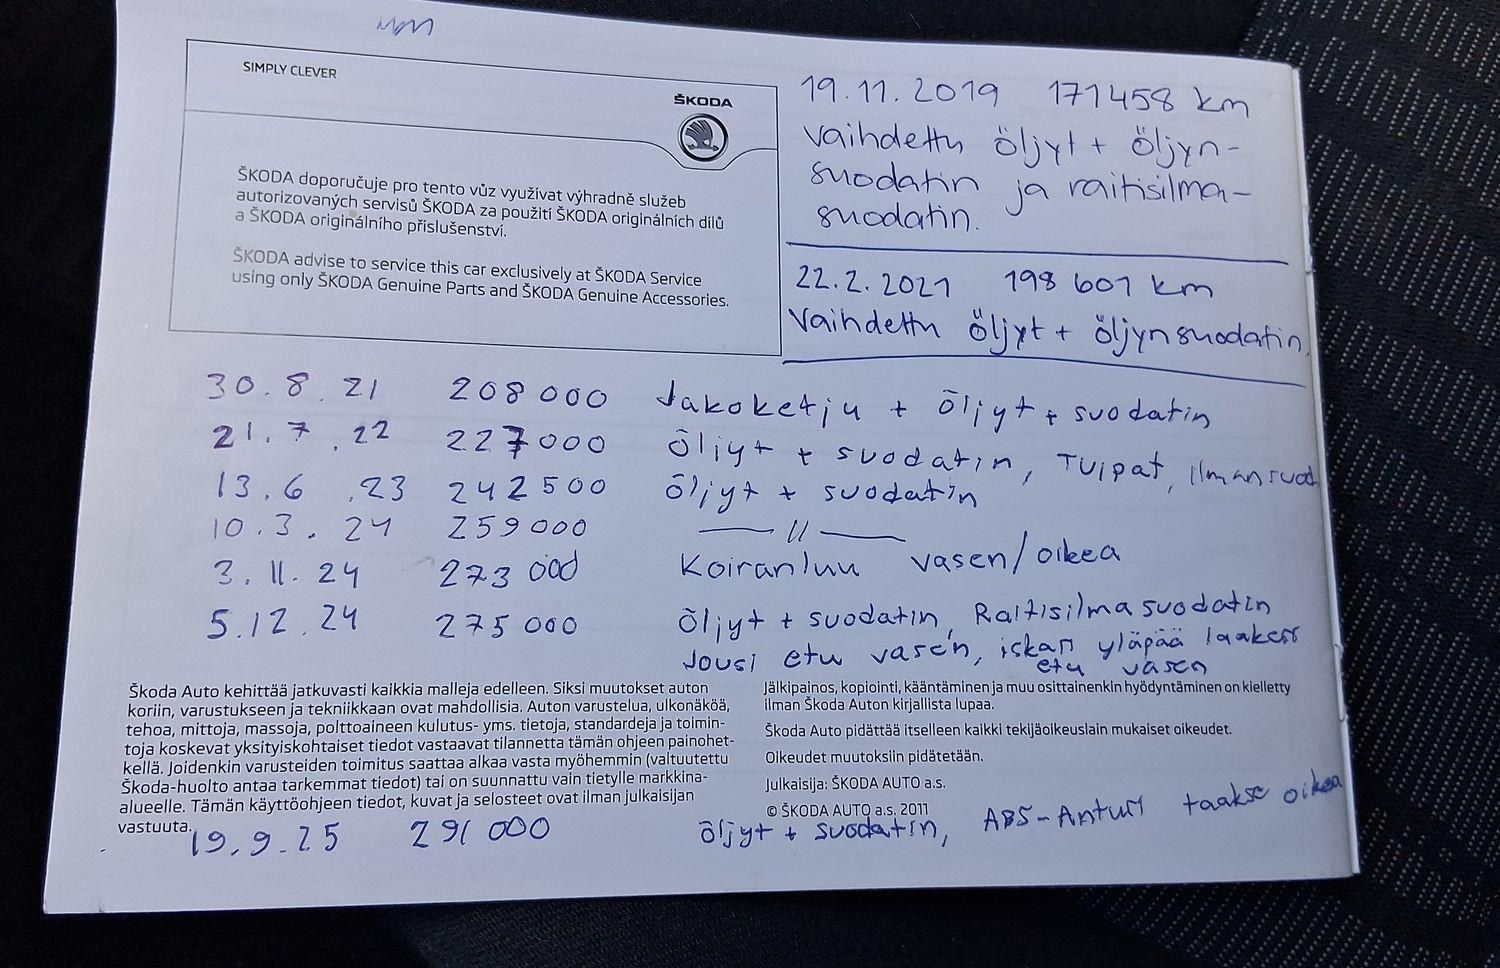 SIMPLY CLEVER
ŠKODA
ŠKODA doporučuje pro tento vůz využívat výhradně služeb
autorizovaných servisů ŠKODA za použití ŠKODA originálních dílů
a ŠKODA originálního příslušenství.
ŠKODA advise to service this car exclusively at ŠKODA Service
using only ŠKODA Genuine Parts and ŠKODA Genuine Accessories.
19.11.2019 171458 km
Vaihdettu öljyt + öljyn-
suodatin ja raitisilma-
suodatin.
22.2.2021 198 601 km
Vaihdettu öljyt + öljynsuodatin.
30.8.21 208000 Jakoketju + öljyt + suodatin
21.7.22 227000 öljyt + suodatin, Tulpat, ilmansuod
13.6.23 242500 öljyt + suodatin
10.3.24 259000 —— 〃 ——
3.11.24 273 000 Koiranluu vasen/oikea
5.12.24 275000 öljyt + suodatin, Raitisilmasuodatin
Jousi etu vasen, iskan yläpää laakeri
etu vasen
Škoda Auto kehittää jatkuvasti kaikkia malleja edelleen. Siksi muutokset auton
koriin, varustukseen ja tekniikkaan ovat mahdollisia. Auton varustelua, ulkonäköä,
tehoa, mittoja, massoja, polttoaineen kulutus- yms. tietoja, standardeja ja toimin-
toja koskevat yksityiskohtaiset tiedot vastaavat tilannetta tämän ohjeen painohet-
kellä. Joidenkin varusteiden toimitus saattaa alkaa vasta myöhemmin (valtuutettu
Škoda-huolto antaa tarkemmat tiedot) tai on suunnattu vain tietylle markkina-
alueelle. Tämän käyttöohjeen tiedot, kuvat ja selosteet ovat ilman julkaisijan
vastuuta.
Jälkipainos, kopiointi, kääntäminen ja muu osittainenkin hyödyntäminen on kielletty
ilman Škoda Auton kirjallista lupaa.
Škoda Auto pidättää itselleen kaikki tekijäoikeuslain mukaiset oikeudet.
Oikeudet muutoksiin pidätetään.
Julkaisija: ŠKODA AUTO a.s.
© ŠKODA AUTO a.s. 2011
19.9.25 291 000 öljyt + suodatin, ABS-Anturi taakse oikea